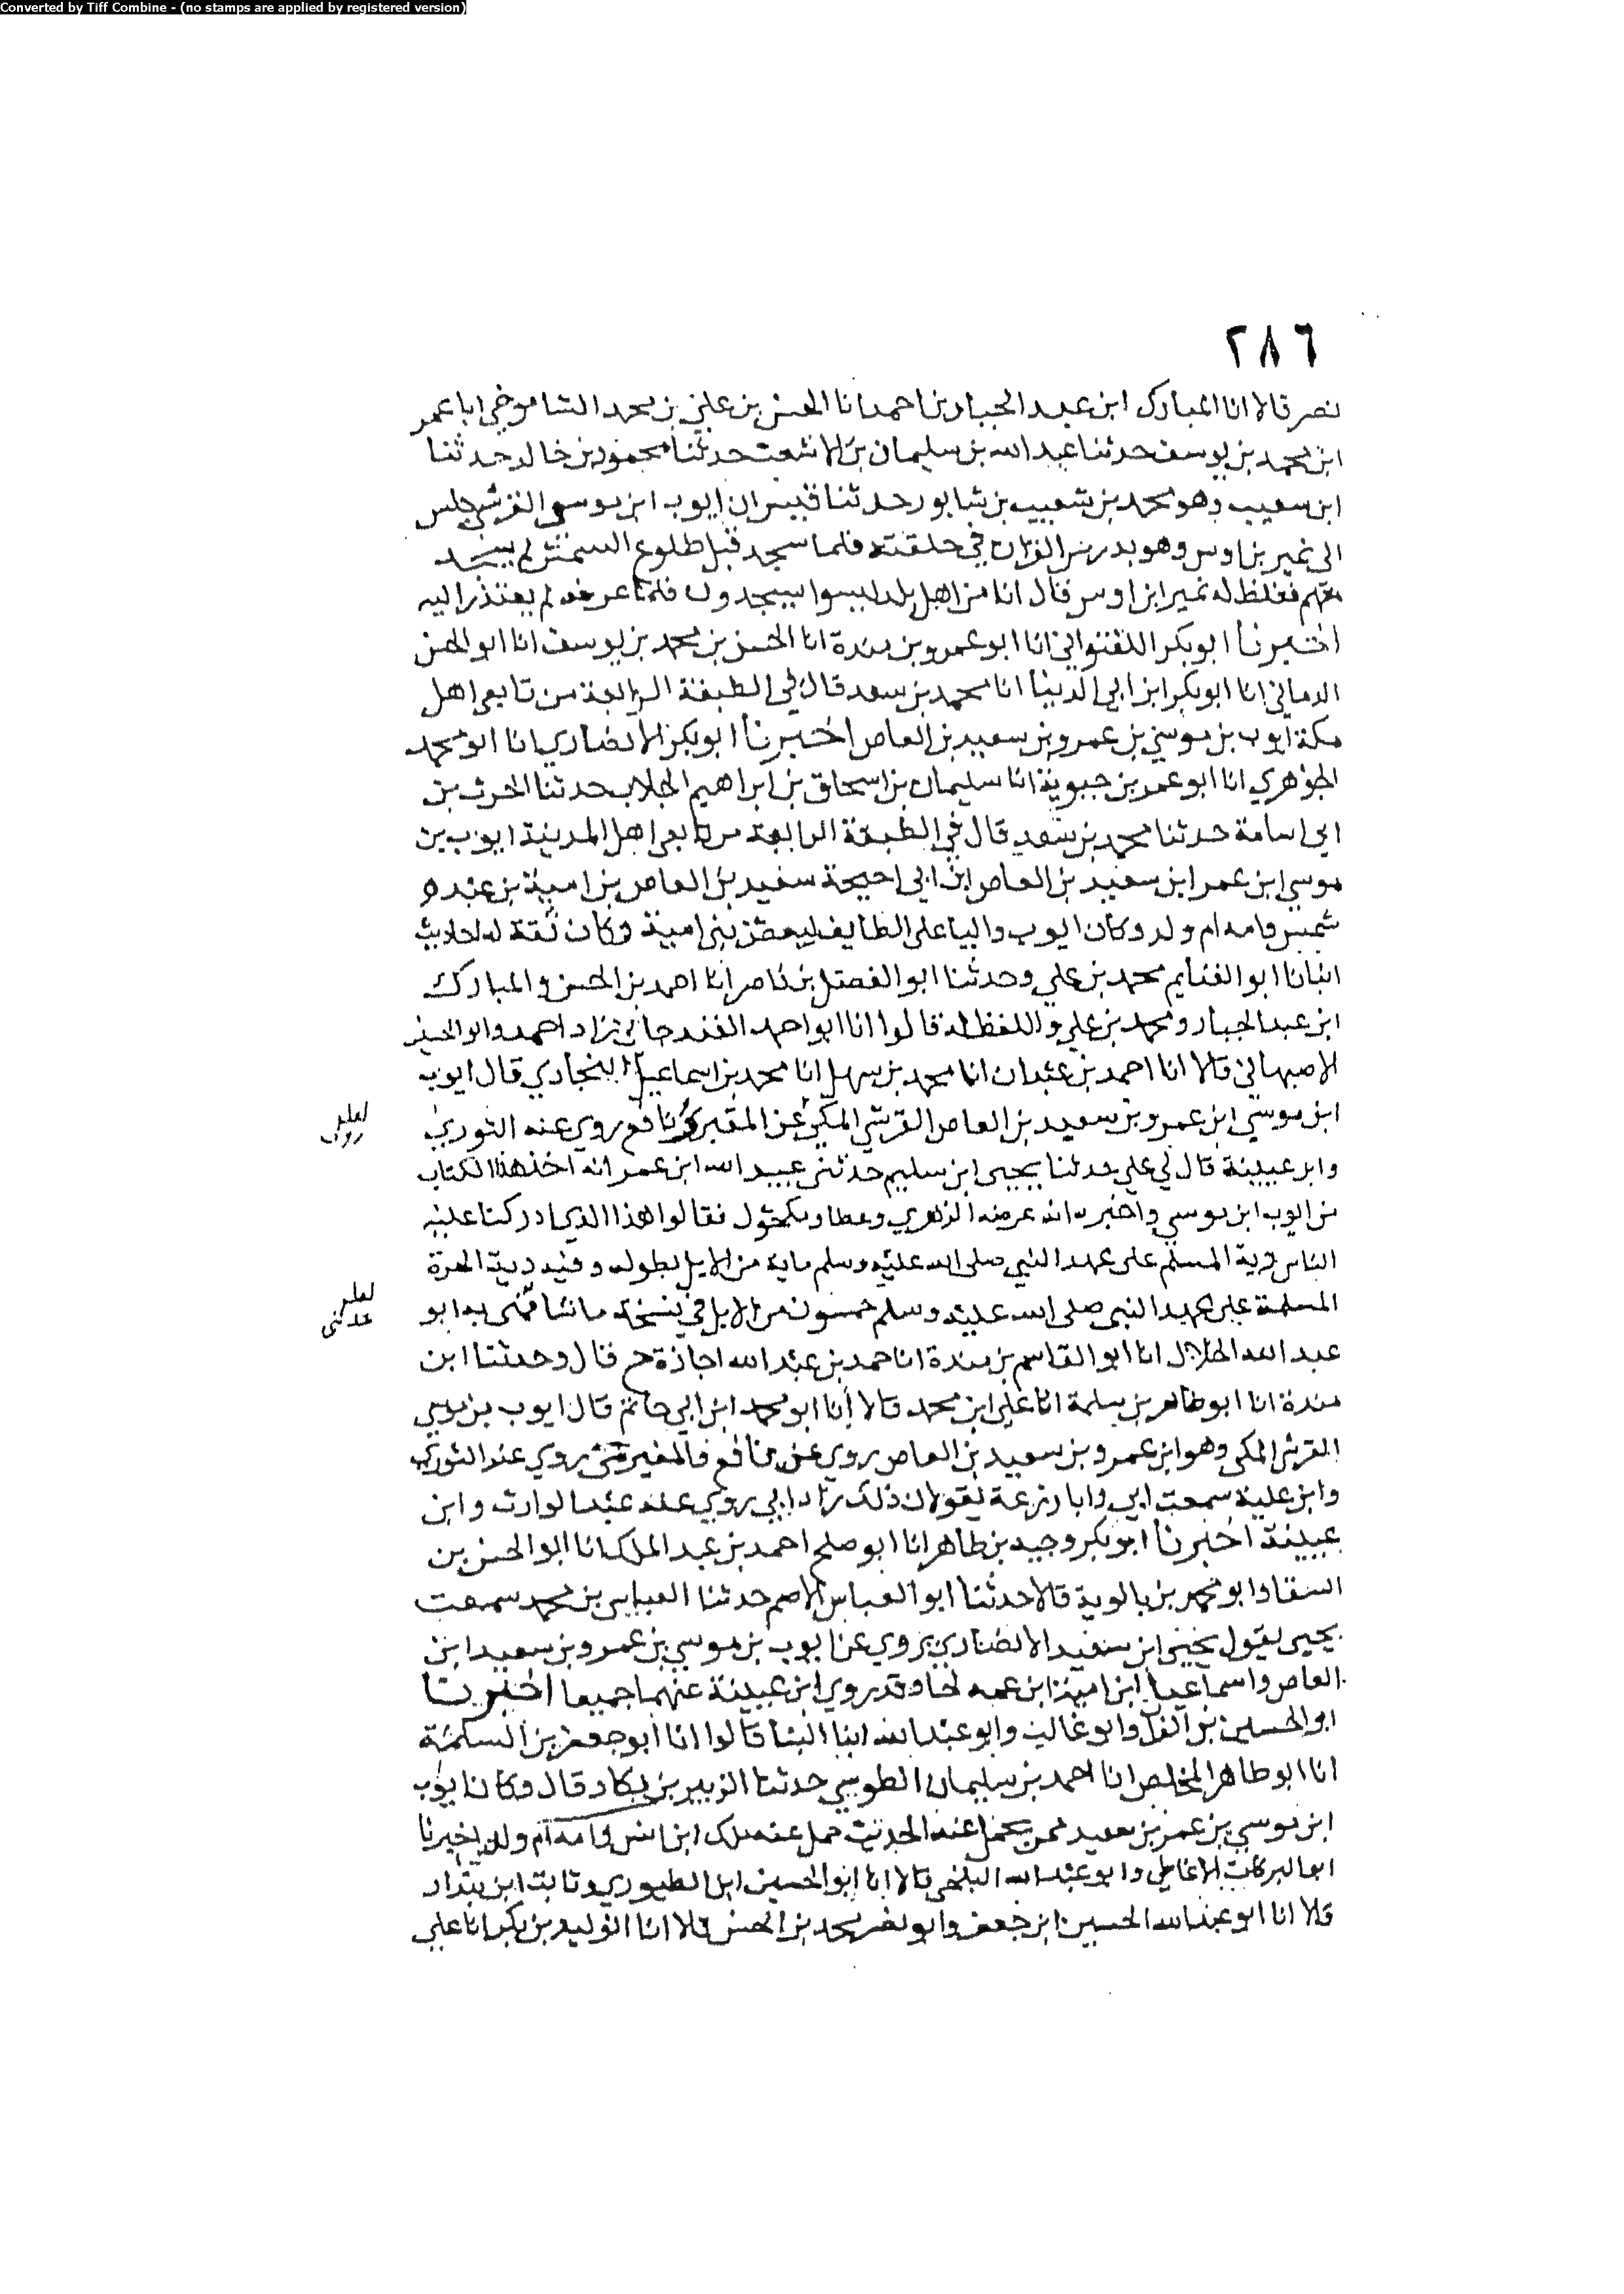 Converted by Tiff Combine - (no stamps are applied by registered version)
٢٨٦
نصر قالا انا المبارك ابن عبد الجبار بن احمد انا الحسن بن علي بن محمد الشاموخي ابا عمر
ابن محمد بن يوسف حدثنا عبد الله بن سليمان بن الاشعث حدثنا محمود بن خالد حدثنا
ابن سعيب وهو محمد بن شعيب بن شابور حدثنا قيس ان ايوب ابن موسى القرشي جلس
الى نمير بن اوس وهو يدرس القران في حلقته فلما سجد قبل طلوع الشمس لم يسجد
معهم فغلظ له نمير ابن اوس فقال انا من اهل بلد ليسوا يسجدون فلما عرفه لم يعتذر اليه
اخبرنا ابو بكر اللفتواني انا ابو عمرو بن مندة انا الحسن بن محمد بن يوسف انا ابو الحسن
الدماني انا ابو بكر ابن ابي الدينا انا محمد بن سعد قال في الطبقة الرابعة من تابعي اهل
مكة ايوب بن موسي بن عمرو بن سعيد بن العاص اخبرنا ابو بكر الانصاري انا ابو محمد
الجوهري انا ابو عمر بن حيوية انا سليمان بن اسحاق بن ابراهيم الجلاب حدثنا الحرث بن
ابي اسامة حدثنا محمد بن سعد قال في الطبقة الرابعة من تابعي اهل المدينة ايوب بن
موسي ابن عمر ابن سعيد بن العاص ابن ابي احيحة سعيد بن العاص بن امية بن عبده
شمس وامه ام ولد وكان ايوب واليا على الطايف لبعض بني امية وكان ثقة له احاديث
انبانا ابو الغنايم محمد بن علي وحدثنا ابو الفضل بن ناصر انا احمد بن الحسن والمبارك
ابن عبد الجبار ومحمد بن علي واللفظ له قالوا انا ابو احمد الغندجاني زاد احمد وابو الحسن
الاصبهاني قالا انا احمد بن عبدان انا محمد بن سهل انا محمد بن اسماعيل البخاري قال ايوب
ابن موسي ابن عمرو بن سعيد بن العاص القرشي المكي عن المقبري ونافع روي عنه الثوري
لعله
وابن عيينة قال لي علي حدثنا يحيى ابن سليم حدثني عبيد الله ابن عمر انه اخذ هذا الكتاب
من ايوب ابن موسي واخبره انه عرضه الزهري وعطا ومكحول فقالوا هذا الذي ادركنا عليه
الناس دية المسلم على عهد النبي صلى الله عليه وسلم ماية من الابل بطوله وفيه دية الحرة
المسلمة على عهد النبي صلى الله عليه وسلم خمسون من الابل في نسخة ما شافهني به ابو
لعله
عبد الله الخلال انا ابو القاسم بن مندة انا حمد بن عبد الله اجازة ح قال وحدثنا ابن
مندة انا ابو طاهر بن سلمة انا علي ابن محمد قالا انا ابو محمد ابن ابي حاتم قال ايوب بن موسي
القرشي المكي وهو ابن عمرو بن سعيد بن العاص روي عن نافع روي عنه الثوري
وابن علية سمعت ابي وابا زرعة يقولان ذلك زاد ابي روي عنه عبد الوارث وابن
عيينة اخبرنا ابو بكر وجيه بن طاهر انا ابو صلح احمد بن عبد الملك انا ابو الحسن بن
السقا وابو محمد بن بالوية قالا حدثنا ابو العباس الاصم حدثنا العباس بن محمد سمعت
يحيى يقول يحيى ابن سعيد الانصاري يروي عن ايوب بن موسي بن عمرو بن سعيد ابن
العاص واسماعيل ابن امية ابن عمه لحا وقد روي ابن عيينة عنهما جميعا اخبرنا
ابو الحسين بن الفرا وابو غالب وابو عبد الله ابنا البنا قالوا انا ابو جعفر بن المسلمة
انا ابو طاهر المخلص انا احمد بن سليمان الطوسي حدثنا الزبير بن بكار قال وكان ايوب
ابن موسي بن عمر بن سعيد ممن يحمل عنه الحديث حمل عنه ملك ابن انس وامه ام ولد اخبرنا
ابو البركات الانماطي وابو عبد الله البلخي قالا انا ابو الحسين ابن الطيوري وثابت ابن بندار
قالا انا ابو عبد الله الحسين ابن جعفر وابو نصر محمد بن الحسن قالا انا الوليد بن بكر انا علي